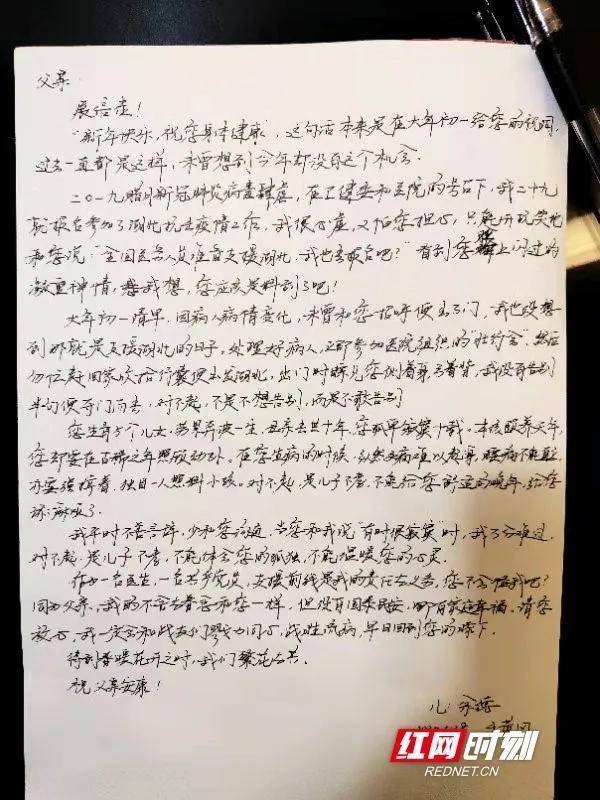 父亲:
展信佳！
“新年快乐，祝您身体健康”，这句话本来是在大年初一给您的祝词，
过去一直都是这样，未曾想到今年却没有这个机会。
二〇一九腊月新冠肺炎病毒肆虐，在卫健委和医院的号召下，我二十九
就报名参加了湖北抗击疫情工作，我很心虚，又怕您担心，只能开玩笑地
和您说：“全国医务人员准备支援湖北，我也去报名吧？”看到您脸上闪过的
凝重神情，我想，您应该是料到了吧！
大年初一清早，因病人病情变化，未曾和您打招呼便出了门，我也没想
到那就是支援湖北的日子。处理好病人，立即参加医院组织的“壮行会”，然后
匆忙赶回家收拾行囊便出发湖北，出门时瞧见您侧着身弓着背，我没有告别
半句便夺门而去，对不起，不是不想告别，而是不敢告别
您生育5个儿女，劳累奔波一生，母亲去世十年，您孤单寂寞十载。本该颐养天年，
您却要在古稀之年照顾幼孙。在您生病的时候，
独自一人照料小孩。对不起，是儿子不孝，不能给您舒适的晚年，给您
添麻烦了。
我平时不善言辞，少和您沟通，当您和我说“有时很寂寞”时，我十分难过，
对不起，是儿子不孝，不能体会您的孤独，不能温暖您的心灵。
作为一名医生，一名共产党员，支援前线是我的责任与义务，您不会怪我吧？
同为父亲，我的不舍与眷恋和您一样，但没有国泰民安，哪有家庭幸福。请您
放心，我一定会和战友们勠力同心，战胜流病，早日回到您的膝下。
待到春暖花开之时，我们繁花与共。
祝父亲安康！
儿:
红网时刻
REDNET.CN